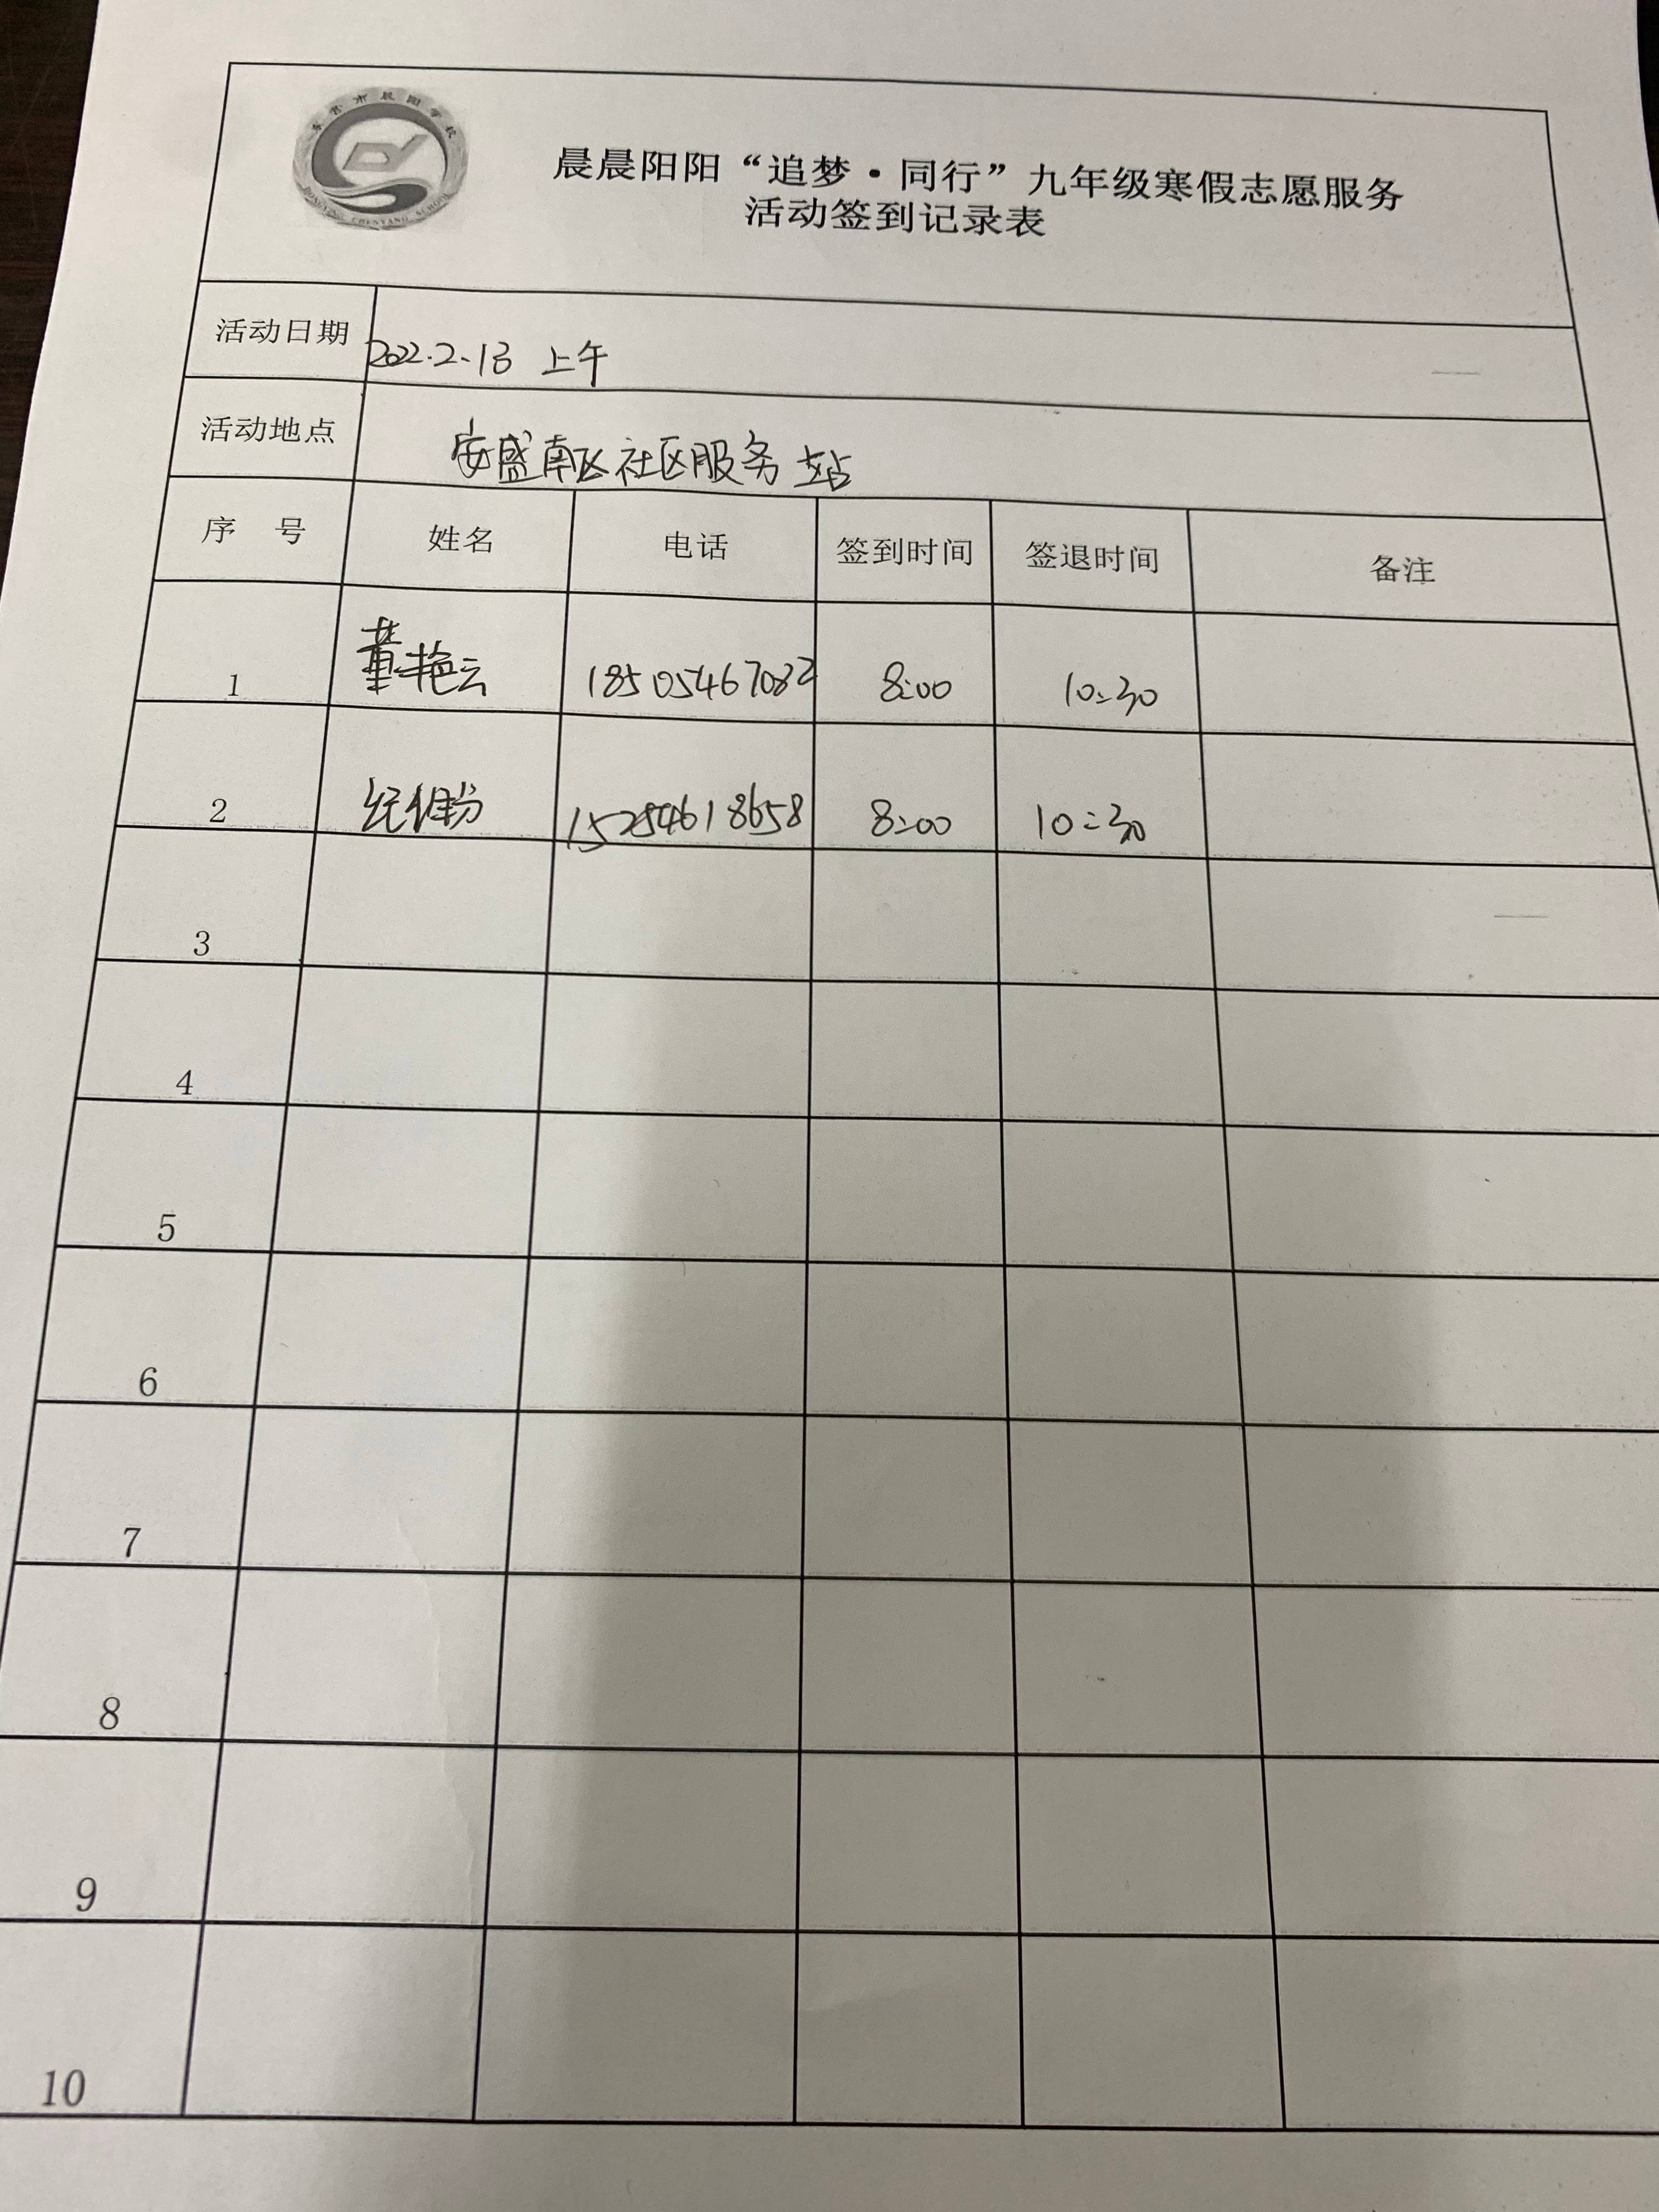 东营市晨阳学校
DONGYING CHENYANG SCHOOL
晨晨阳阳“追梦·同行”九年级寒假志愿服务
活动签到记录表
活动日期 2022.2.13 上午
活动地点 安盛南区社区服务站
序 号 姓名 电话 签到时间 签退时间 备注
1 董艳云 18505467082 8:00 10:30
2 15254618658 8:00 10:30
3
4
5
6
7
8
9
10